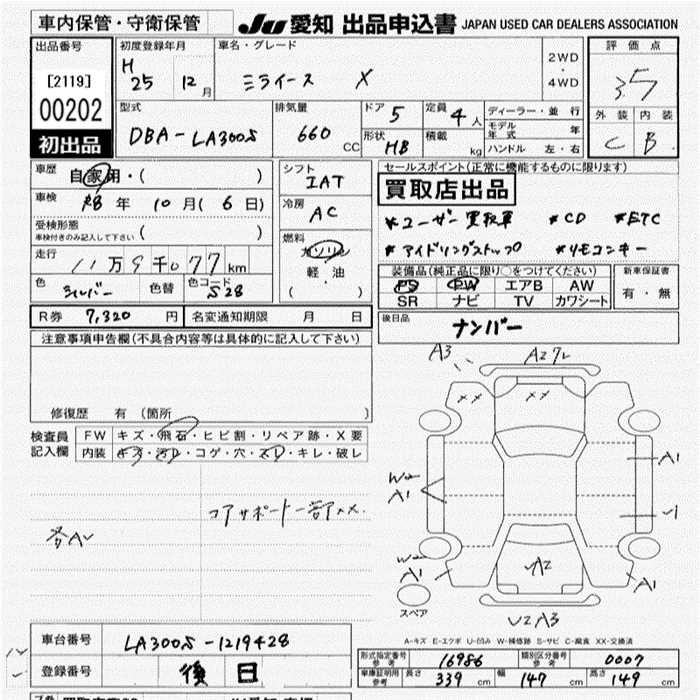 車内保管・守衛保管
JU 愛知 出品申込書 JAPAN USED CAR DEALERS ASSOCIATION
出品番号 初度登録年月 車名・グレード 2WD・4WD 評価点
[2119] H 25 12月 ミライース X 3.5
00202 型式 排気量 ドア 5 定員 4人 ディーラー・並行 外装 内装
DBA-LA300S 660CC モデル年式 年
初出品 形状 HB 積載 kg ハンドル 左・右 C B
車歴 自家用・( ) シフト IAT セールスポイント(正常に機能するものに限ります)
買取店出品
車検 R8年 10月(6日) 冷房 AC
*ユーザー買取車 *CD *ETC
受検形態 ( )
車検付きのみ記入して下さい
燃料 ガソリン *アイドリングストップ *リモコンキー
走行 11万9千077km 軽・油
( )
装備品(純正品に限り○をつけてください) 新車保証書
色 シルバー 色替 色コード S28
PS PW エアB AW 有・無
SR ナビ TV カワシート
R券 7,320円 名変通知期限 月 日 後日品 ナンバー
注意事項申告欄(不具合内容等は具体的に記入して下さい)
修復歴 有 (箇所 )
A3 A2
XX XX
検査員記入欄 FW キズ・飛石・ヒビ割・リペア跡・X要
内装 キズ・汚レ・コゲ・穴・スレ・キレ・破レ
W2 A1 A1
コアサポート一部XX.
W2 A1 A2 A1
スペア
A3
A-キズ E-エクボ U-凹み W-補修跡 S-サビ C-腐食 XX-交換済
車台番号 LA300S-1219428
型式指定番号 参考 16986 類別区分番号 参考 0007
登録番号 後日 車庫証明用 参考 長さ 339cm 幅 147cm 高さ 149cm